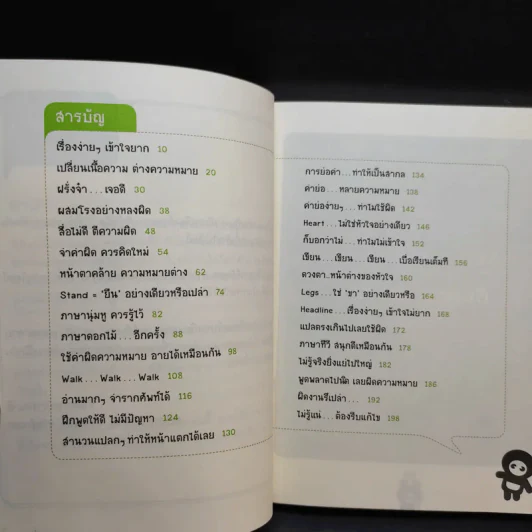 สารบัญ
เรื่องง่ายๆ เข้าใจยาก 10
เปลี่ยนเนื้อความ ต่างความหมาย 20
ฝรั่งจ๋า...เจอดี 30
ผสมโรงอย่างหลงผิด 38
สื่อไม่ดี ตีความผิด 48
จำคำผิด ควรคิดใหม่ 54
หน้าตาคล้าย ความหมายต่าง 62
Stand = 'ยืน' อย่างเดียวหรือเปล่า 74
ภาษานุ่มหู ควรรู้ไว้ 82
ภาษาดอกไม้...อีกครั้ง 88
ใช้คำผิดความหมาย อายได้เหมือนกัน 98
Walk...Walk...Walk 108
อ่านมากๆ จำรากศัพท์ได้ 116
ฝึกพูดให้ดี ไม่มีปัญหา 124
สำนวนแปลกๆ ทำให้หน้าแตกได้เลย 130
การย่อคำ...ทำให้เป็นสากล 134
คำย่อ...หลายความหมาย 138
คำย่อง่ายๆ...ทำไมใช้ผิด 142
Heart...ไม่ใช่หัวใจอย่างเดียว 146
ก็บอกว่าไม่...ทำไมไม่เข้าใจ 152
เขียน...เขียน...เขียน...เบื่อเรียนเต็มที 156
ดวงตา..หน้าต่างของหัวใจ 160
Legs...ใช่ 'ขา' อย่างเดียวหรือ 164
Headline...เรื่องง่ายๆ เข้าใจไม่ยาก 168
แปลตรงเกินไปเลยใช้ผิด 172
ภาษาทีวี สนุกดีเหมือนกัน 178
ไม่รู้จริงยิ่งแย่ไปใหญ่ 182
พูดพลาดไปนิด เลยผิดความหมาย 186
ผิดงานรึเปล่า... 192
ไม่รู้แน่...ต้องรีบแก้ไข 198